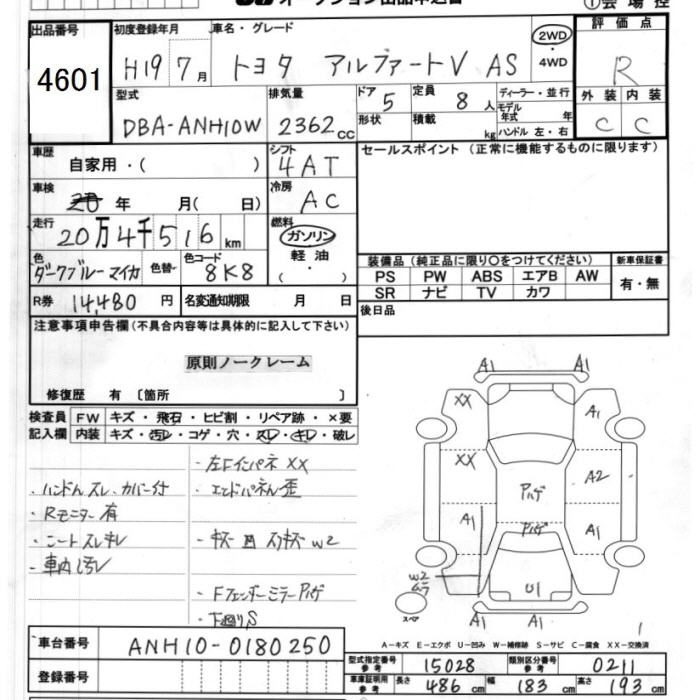 出品番号
4601
初度登録年月
H19 7月
車名・グレード
トヨタ アルファードV AS
2WD
・
4WD
評価点
R
型式
DBA-ANH10W
排気量
2362cc
ドア
5
定員
8人
形状
積載
kg
ディーラー・並行
モデル年式 年
ハンドル 左・右
外装 内装
C C
車歴
自家用・( )
シフト
4AT
車検
年 月( 日)
冷房
AC
走行
20万4千516km
燃料
ガソリン
軽油
( ・ )
色
ダークブルーマイカ
色替
色コード
8K8
R券 14,480円
名変通知期限 月 日
セールスポイント(正常に機能するものに限ります)
装備品(純正品に限り〇をつけてください)
新車保証書
PS PW ABS エアB AW
SR ナビ TV カワ
有・無
後日品
注意事項申告欄(不具合内容等は具体的に記入して下さい)
原則ノークレーム
修復歴 有〔箇所 〕
検査員記入欄
FW キズ・飛石・ヒビ割・リペア跡・×要
内装 キズ・汚レ・コゲ・穴・スレ・キレ・破レ
・左Fインパネ XX
・ハンドルスレ、カバー付
・エンドパネル歪
・Rモニター有
・シートスレキレ
・キズ 凹 スリキズ W2
・車内汚レ
・Fフェンダーミラーハゲ
・下廻りS
A1 A1
XX A1
XX A2
ハゲ
A1 ハゲ A1
W2
U1
スペア
A1 A1
1
A-キズ E-エクボ U-凹み W-補修跡 S-サビ C-腐食 XX-交換済
車台番号 ANH10-0180250
登録番号
型式指定番号 参考 15028
類別区分番号 参考 0211
車庫証明用 参考 長さ 486cm 幅 183cm 高さ 193cm